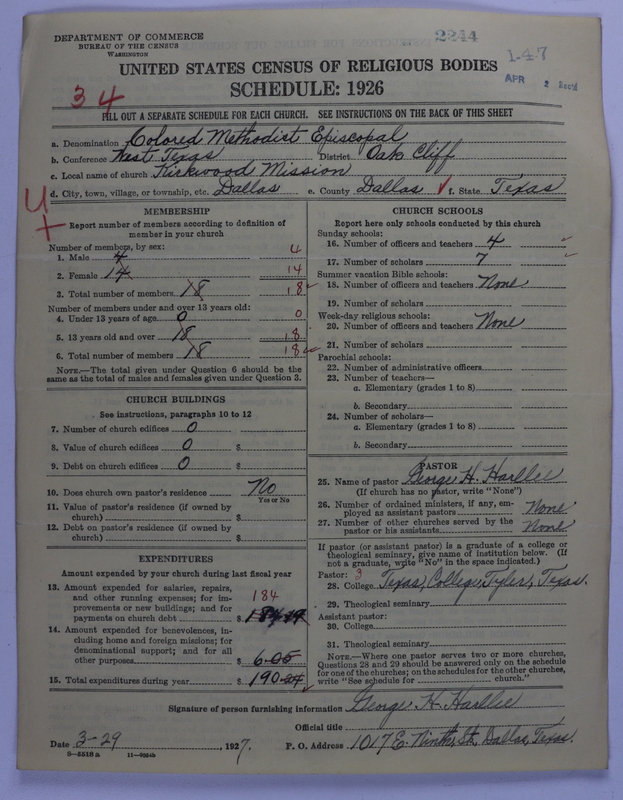 DEPARTMENT OF COMMERCE
BUREAU OF THE CENSUS
WASHINGTON
2244
1-47
APR 2 Rec'd
UNITED STATES CENSUS OF RELIGIOUS BODIES
SCHEDULE: 1926
34
FILL OUT A SEPARATE SCHEDULE FOR EACH CHURCH. SEE INSTRUCTIONS ON THE BACK OF THIS SHEET
a. Denomination Colored Methodist Episcopal
b. Conference West Texas District Oak Cliff
c. Local name of church Kirkwood Mission
d. City, town, village, or township, etc. Dallas e. County Dallas f. State Texas
MEMBERSHIP
Report number of members according to definition of
member in your church
Number of members, by sex:
1. Male 4 4
2. Female 14 14
3. Total number of members 18 18
Number of members under and over 13 years old:
4. Under 13 years of age 0 0
5. 13 years old and over 18 18
6. Total number of members 18 18
NOTE.—The total given under Question 6 should be
same as the total of males and females given under Question 3.
CHURCH BUILDINGS
See instructions, paragraphs 10 to 12
7. Number of church edifices 0
8. Value of church edifices 0 $
9. Debt on church edifices 0 $
10. Does church own pastor's residence No
Yes or No
11. Value of pastor's residence (if owned by
church) $
12. Debt on pastor's residence (if owned by
church) $
EXPENDITURES
Amount expended by your church during last fiscal year
13. Amount expended for salaries, repairs,
and other running expenses; for im-
provements or new buildings; and for
payments on church debt $ 184.19
184
14. Amount expended for benevolences, in-
cluding home and foreign missions; for
denominational support; and for all
other purposes $ 6.05
15. Total expenditures during year $ 190.24
CHURCH SCHOOLS
Report here only schools conducted by this church
Sunday schools:
16. Number of officers and teachers 4
17. Number of scholars 7
Summer vacation Bible schools:
18. Number of officers and teachers None
19. Number of scholars
Week-day religious schools:
20. Number of officers and teachers None
21. Number of scholars
Parochial schools:
22. Number of administrative officers
23. Number of teachers—
a. Elementary (grades 1 to 8)
b. Secondary
24. Number of scholars—
a. Elementary (grades 1 to 8)
b. Secondary
PASTOR
25. Name of pastor George H. Harllee
(If church has no pastor, write "None")
26. Number of ordained ministers, if any, em-
ployed as assistant pastors None
27. Number of other churches served by the
pastor or his assistants None
If pastor (or assistant pastor) is a graduate of a college or
theological seminary, give name of institution below. (If
not a graduate, write "No" in the space indicated.)
Pastor: 3
28. College Texas, College, Tyler, Texas.
29. Theological seminary
Assistant pastor:
30. College
31. Theological seminary
NOTE.—Where one pastor serves two or more churches,
Questions 28 and 29 should be answered only on the schedule
for one of the churches; on the schedules for the other churches,
write "See schedule for church."
Signature of person furnishing information George H. Harllee
Official title
Date 3-29, 1927. P. O. Address 1017 E. Ninth St, Dallas, Texas.